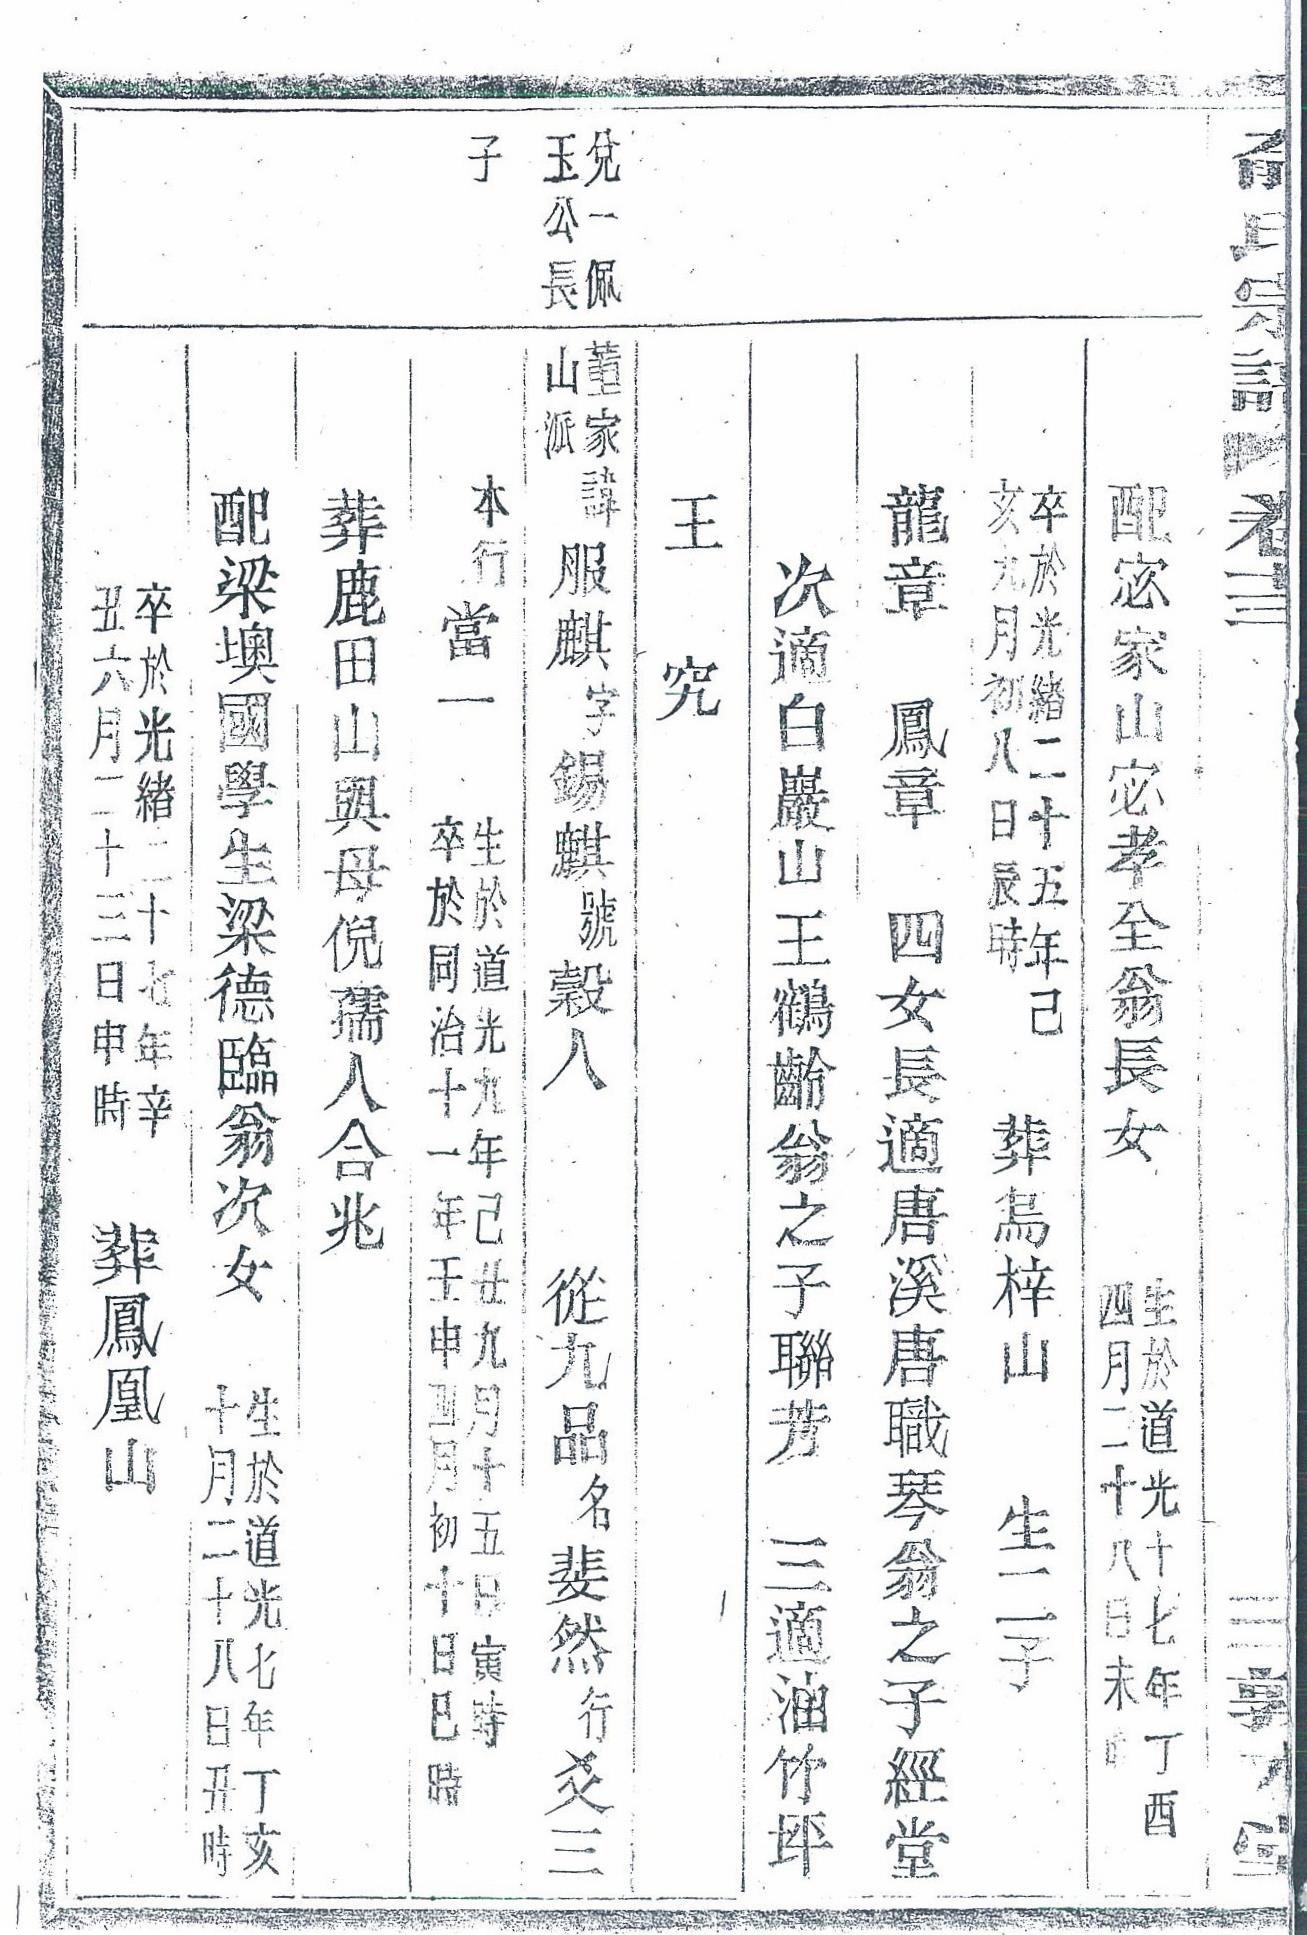 氏宗譜 卷三
配宓家山宓孝全翁長女 生於道光十七年丁酉四月二十八日未
卒於光緒二十五年己亥九月初八日辰時 葬烏梓山 生二子
龍章 鳳章 四女長適唐溪唐職琴翁之子經堂
次適白巖山王鶴齡翁之子聯芳 三適油竹坪
王 究
兌一佩玉公長
董家山派 諱服麒字錫麒號榖人 從九品名斐然行爻三
子
本行當一 生於道光九年己丑九月十五日寅時卒於同治十一年壬申四月初十日巳時
葬鹿田山與母倪孺人合兆
配梁墺國學生梁德臨翁次女 生於道光七年丁亥十月二十八日丑時
卒於光緒二十七年辛丑六月二十三日申時 葬鳳凰山